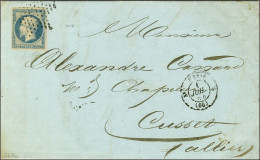 Monsieur
Alexandre
Md Chapelier
Cusset
(Allier)
PARIS
(60)